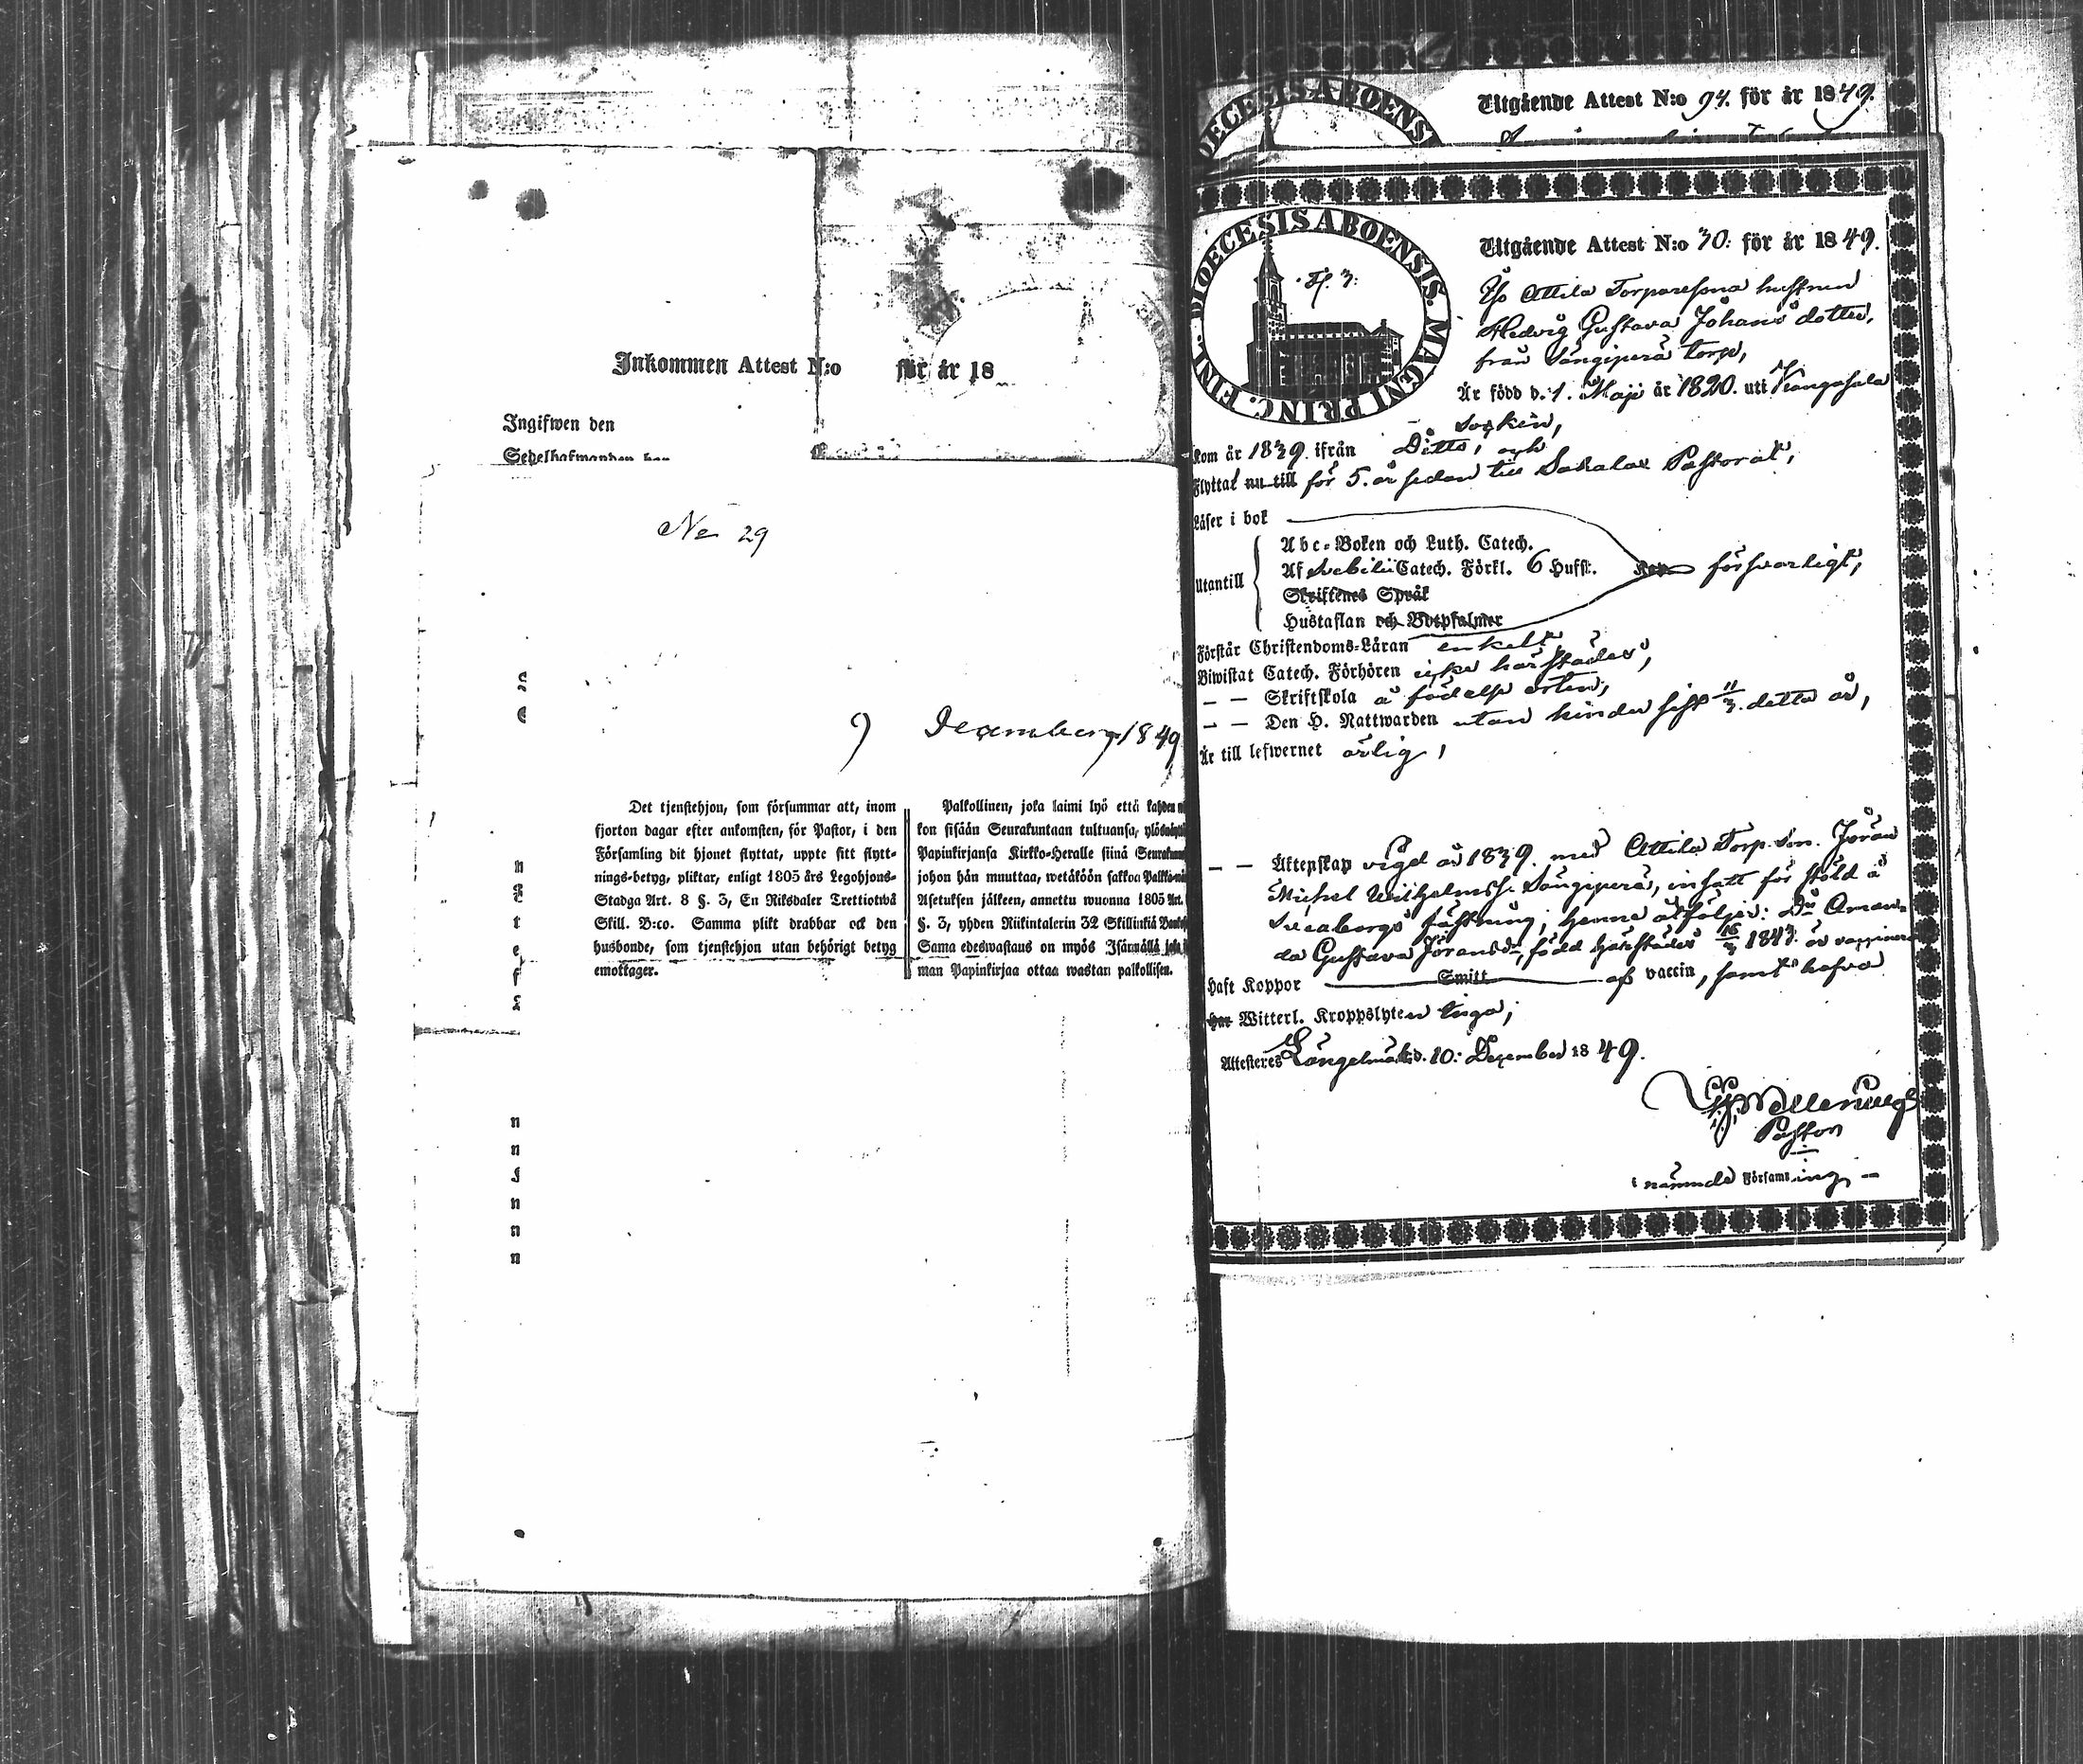 Inkommen Attest N:o för år 18
Ingifwen den
No 29
9 December 1849
Det tjenstehjon, som försummar att, inom
fjorton dagar efter ankomsten, för Pastor, i den
Församling dit hjonet flyttat, uppte sitt flytt-
nings-betyg, pliktar, enligt 1805 års Legohjons-
Stadga Art. 8 §. 3, En Riksdaler Trettiotwå
Skill. B:co. Samma plikt drabbar ock den
husbonde, som tjenstehjon utan behörigt betyg
emottager.
Palkollinen, joka laimi lyö että kahden
kon sisään Seurakuntaan tultuansa,
Papinkirjansa Kirkko-Heralle siinä
johon hän muuttaa, wetäköön sakkoa
Asetuksen jälkeen, annettu wuonna 1805 Art.
§. 3, yhden Riikintalerin 32 Skillinkiä
Sama edeswastaus on myös Isännällä
man Papinkirjaa ottaa wastan palkollisen.
DIOECESIS ABOENS
Utgående Attest N:o 94. för år 1849.
DIOECESIS ABOENSIS. MAGNI PRINC. FINL.
Utgående Attest N:o 30: för år 1849.
Attila Torparesona hustrun
Hedvig Gustava Johans dotter,
från Sängiperä torp,
Är född d. 1. Maji år 1820. uti Kangasala
Socken,
kom år 1839. ifrån Ditto, och
Flyttat nu till för 5. år sedan till Pastorat,
Läser i bok
Utantill
Abc-Boken och Luth. Catech.
Af Svebilii Catech. Förkl. 6 Hufst. försvarligt,
Skriftenes Språk
Hustaflan och Botpsalmer
Förstår Christendoms-Läran enkelt,
Biwistat Catech. Förhören icke härstädes,
— — Skriftskola å födelse orten,
— — Den H. Nattwarden utan hinder sist 11/3. detta år,
Är till lefwernet ärlig,
— — Äktenskap vigd år 1839. med Attila Torp. son. Jöran
Michel Wilhelmss. Sängiperä, insatt för stöld å
Sveaborgs fästning; henne åtföljer: Dn Aman-
da Gustava Jöransdr, född härstädes 16/3 1843. är vaccinerad
Haft Koppor Smitt af vaccin, samt hafva
har Witterl. Kroppslyten inga;
Attesteres Längelmäki d. 10: December 1849.
Pastor
i nämnde Församling —